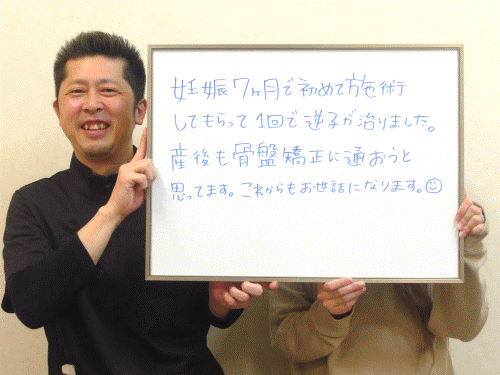 妊娠7ヶ月で初めて施術
してもらって1回で逆子が治りました。
産後も骨盤矯正に通おうと
思ってます。これからもお世話になります。☺